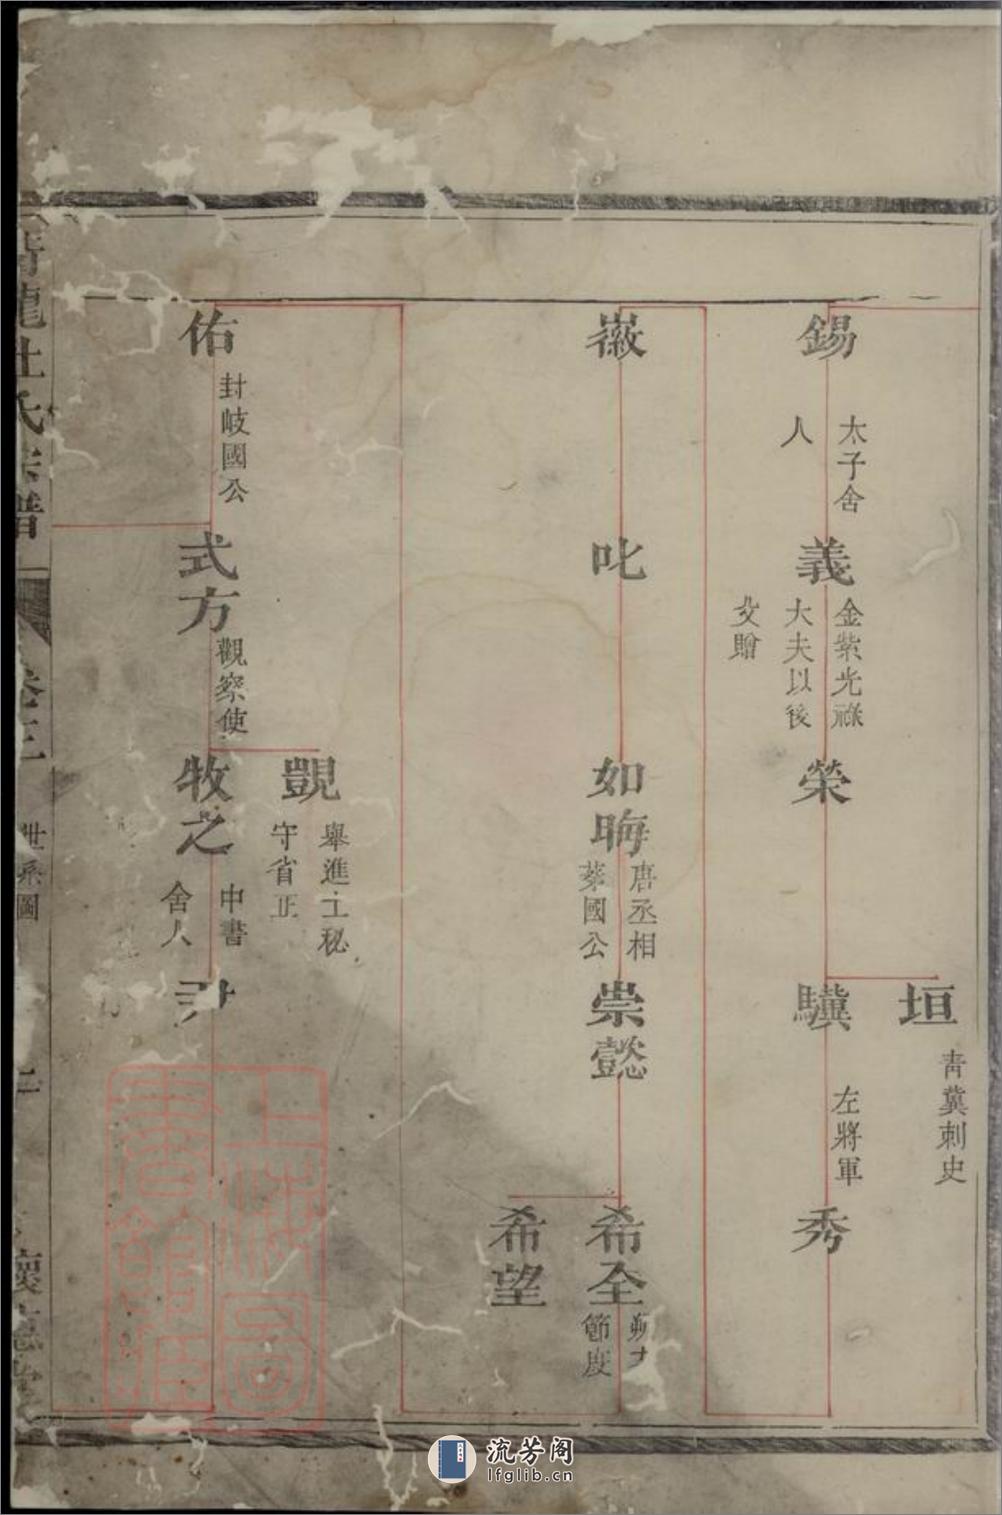 錫
太子舍
人
義
金紫光祿
大夫以後
父贈
榮
垣
青冀刺史
驥
左將軍
秀
徽
叱
如晦
唐丞相
萊國公
崇懿
希全
節度
希望
佑
封岐國公
式方
觀察使
顗
舉進士秘
守省正
牧之
中書
舍人
龍杜氏宗譜
卷三
世系圖
懷
上海圖書館藏
流芳阁
lfglib.cn